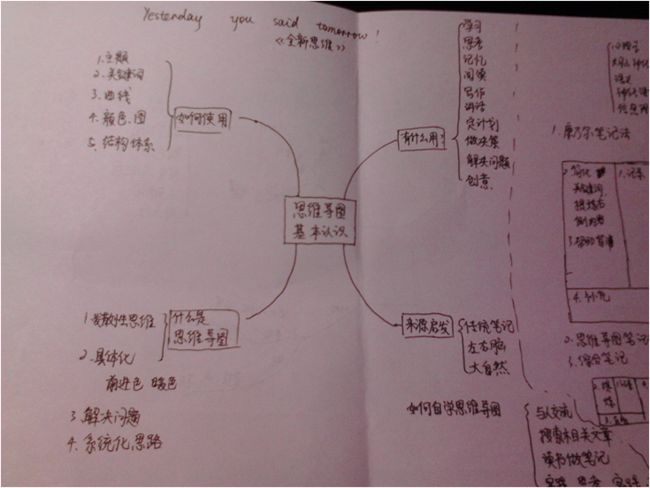 Yesterday you said tomorrow!
《全新思维》
1. 主题
2. 关键词
3. 曲线
4. 颜色、图
5. 结构体系
如何使用
有什么用?
学习
思考
记忆
阅读
写作
讲话
定计划
做决策
解决问题
创意
思维导图
基本认识
什么是
思维导图
1. 发散性思维
2. 具体化
前进色 暖色
3 解决问题
4. 系统化思路
来源启发
传统笔记
左右脑
大自然
如何自学思维导图
与人交流
搜索相关文章
读书做笔记
1. 康乃尔笔记法
2. 简化
关键词
1. 记录
2. 思维导图笔记
3. 综合笔记